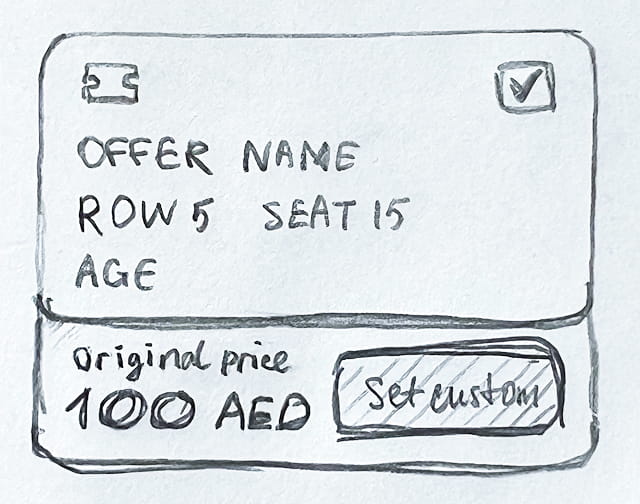 OFFER NAME
ROW 5 SEAT 15
AGE
Original price
100 AED
Set custom